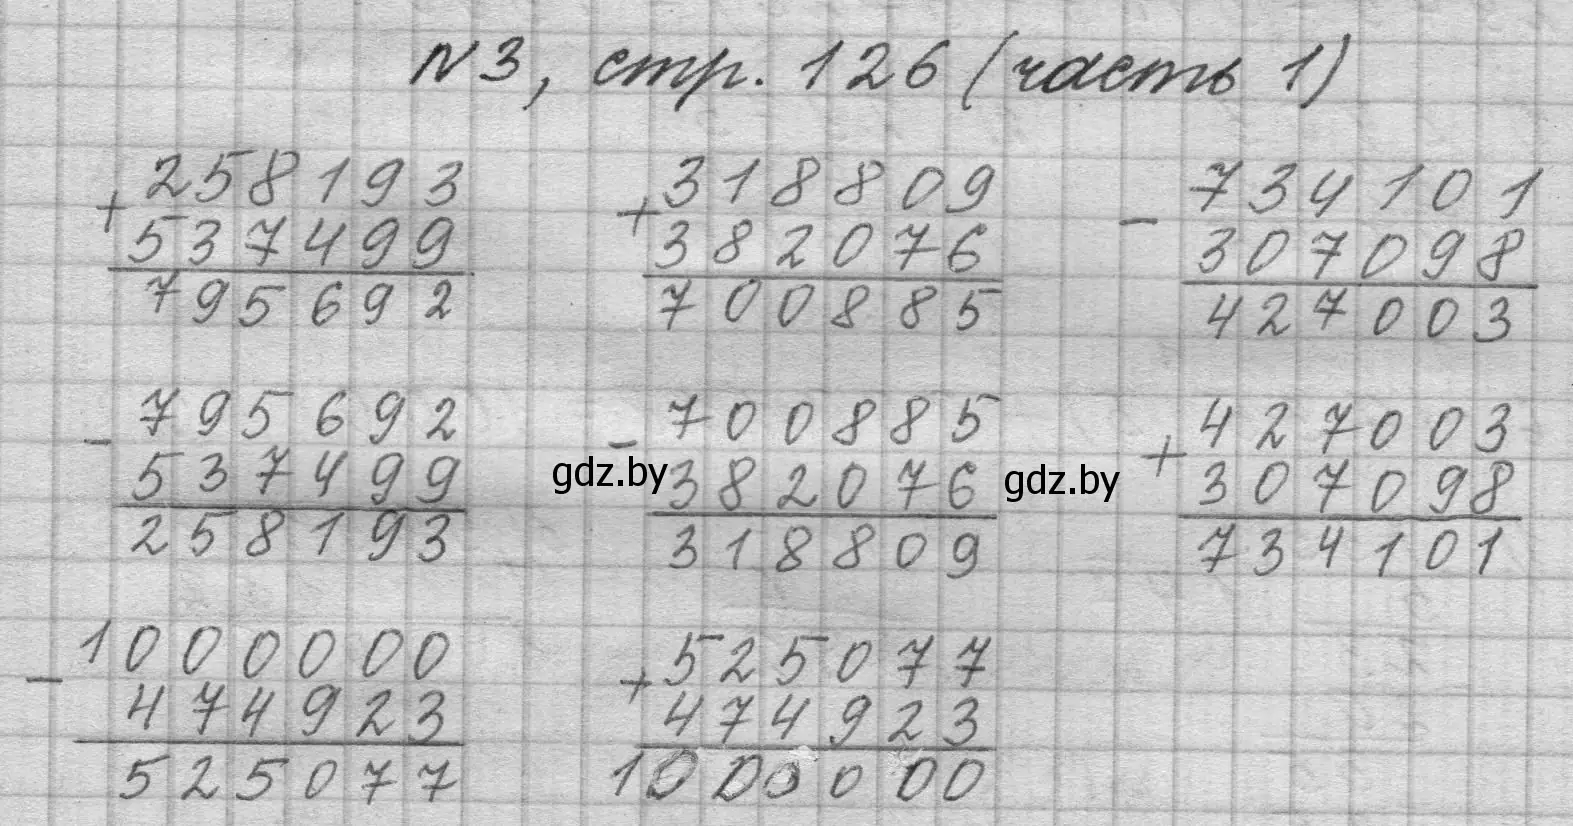 N3, стр. 126 (часть 1)
+ 258193
537499
795692
+ 318809
382076
700885
- 734101
307098
427003
- 795692
537499
258193
- 700885
382076
318809
+ 427003
307098
734101
gdz.by
gdz.by
- 1000000
474923
525077
+ 525077
474923
1000000